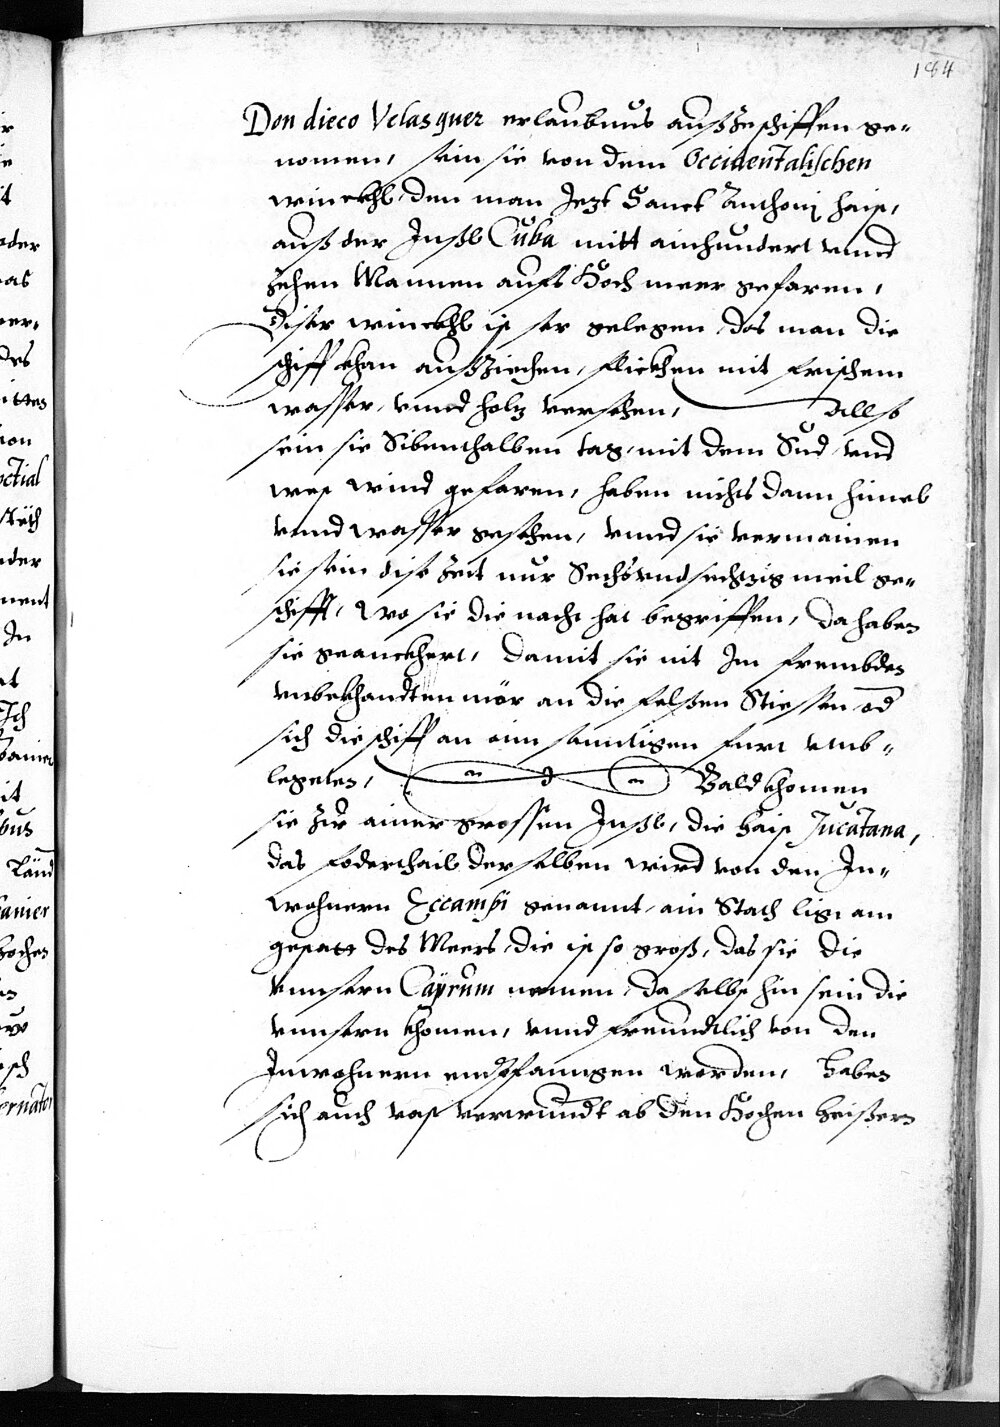 184
Don dieco Velasquer erlaubnus außzeschiffen ge„
nomen, sein sie von dem Occidentalischen
winckhl, den man Jezt Sanct Anthonj haist,
auß der Jnßl Cuba mitt ainhundert vnnd
zehen Mannen aufs Hoch meer gefaren,
diser winckhl ist ser gelegen, das man die
schiff khan außziechen, flickhen mit frischem
wasser, vnnd holz versehen, Allso
sein sie Sibenthalben tag, mit dem Sud vnd
west wind gefaren, haben nichts dann himel
vnnd wasser gesehen, vnnd sie vermainen
sie sein dise Zeit nur Sechsvndsechzig meil ge„
schifft, Wo sie die nacht hat begriffen, da haben
sie geanckhert, damit sie nit Jm frembden
vnbekhandten mör an die felßen Stiessen od
sich die schiff an ein sanndtigen furt vmb„
legeten, Bald khomen
sie zů ainer grossen Jnßl, die haist Jucatana,
das foderthail derselben wird von den Jn„
wohnern Eccampi genannt, ain Stath ligt am
gestatt des Meers, die ist so groß, das sie die
vnnsern Cayrum nennen, daselbst hin sein die
vnnsern khomen, vnnd freundtlich von den
Jnwohnern empfanngen worden, haben
sich auch vast verwundt ab den Hochen heißern